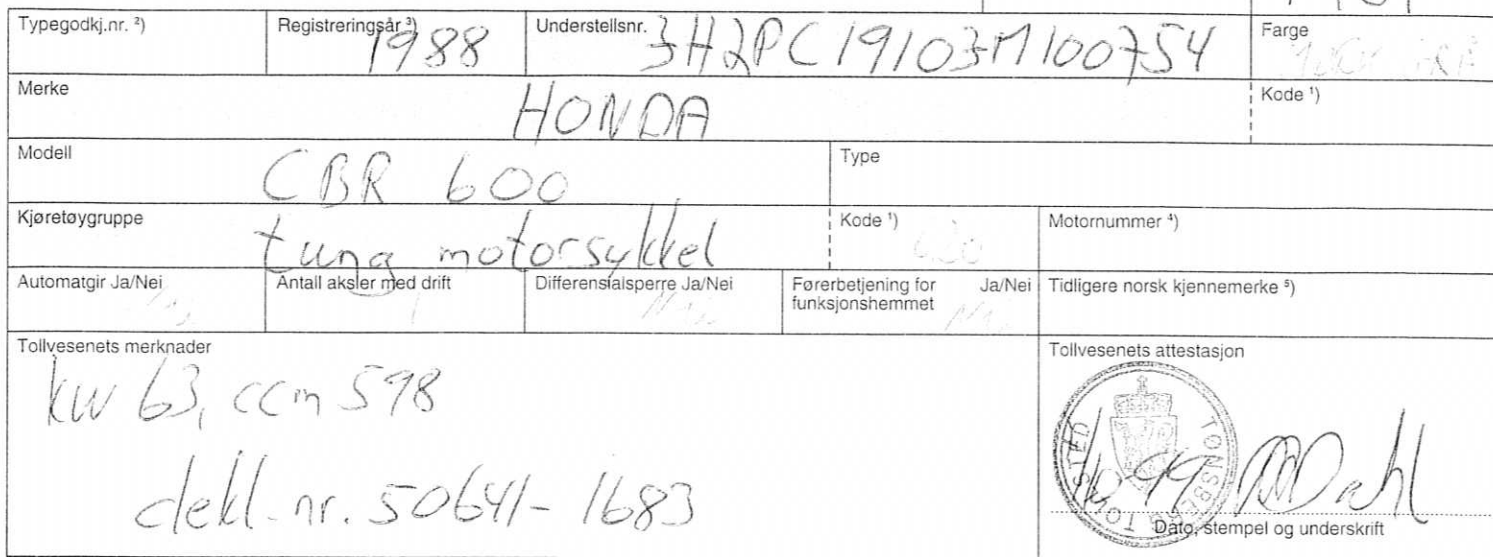 Typegodkj.nr. ²) Registreringsår ³) 1988 Understellsnr. 3H2PC19103M100754 Farge
Merke HONDA Kode ¹)
Modell CBR 600 Type
Kjøretøygruppe tung motorsykkel Kode ¹) 620 Motornummer ⁴)
Automatgir Ja/Nei Antall aksler med drift 1 Differensialsperre Ja/Nei Førerbetjening for funksjonshemmet Ja/Nei Tidligere norsk kjennemerke ⁵)
Tollvesenets merknader Tollvesenets attestasjon
kw 63, ccm 598
dekl. nr. 50641-1683
TØNSBERG TOLLSTED
Dahl
Dato, stempel og underskrift